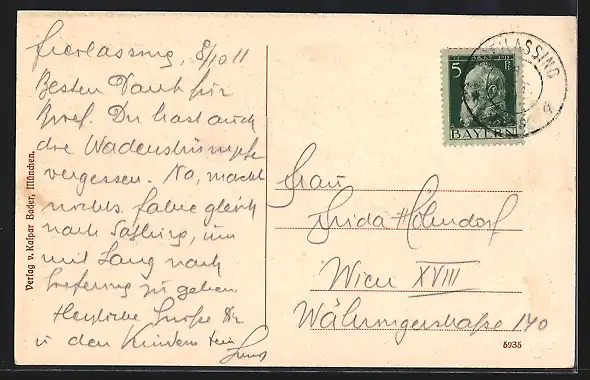 Freilassing, 8/10 11
Besten Dank für
Brief. Du hast auch
die Wadenstrümpfe
vergessen. Na, macht
nichts. Fahre gleich
nach Salzburg, um
mit Lang nach
zu gehen.
Herzliche Grüße Dir
u den Kindern Dein
Verlag v. Kaspar Bader, München.
FREILASSING
5 Pf
BAYERN
Frau
Frida
Wien XVIII
Währingerstraße 140
5935